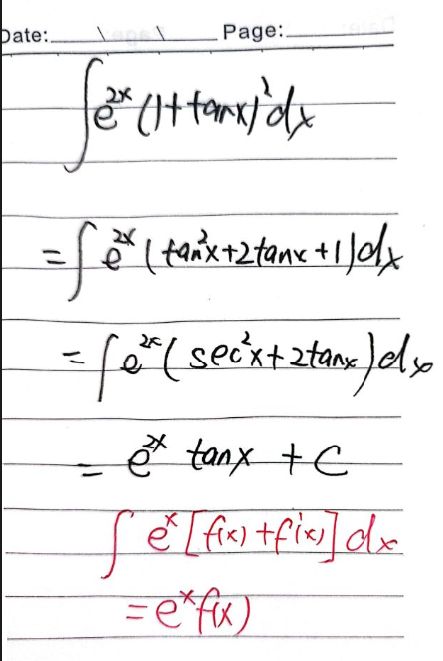 Date: \ \ Page:
∫e²ˣ(1+tanx)²dx
=∫e²ˣ(tan²x+2tanx+1)dx
=∫e²ˣ(sec²x+2tanx)dx
=e²ˣ tanx +C
∫eˣ[f(x)+f'(x)]dx
=eˣf(x)